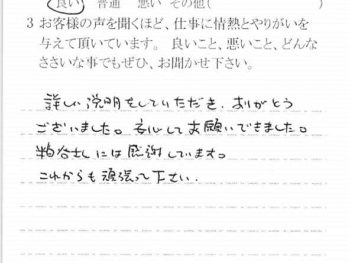 良い 普通 悪い その他( )
3 お客様の声を聞くほど、仕事に情熱とやりがいを
与えて頂いています。 良いこと、悪いこと、どんな
ささいな事でもぜひ、お聞かせ下さい。
詳しい説明をしていただき、ありがとう
ございました。安心してお願いできました。
粕谷さんには感謝しています。
これからも頑張って下さい.